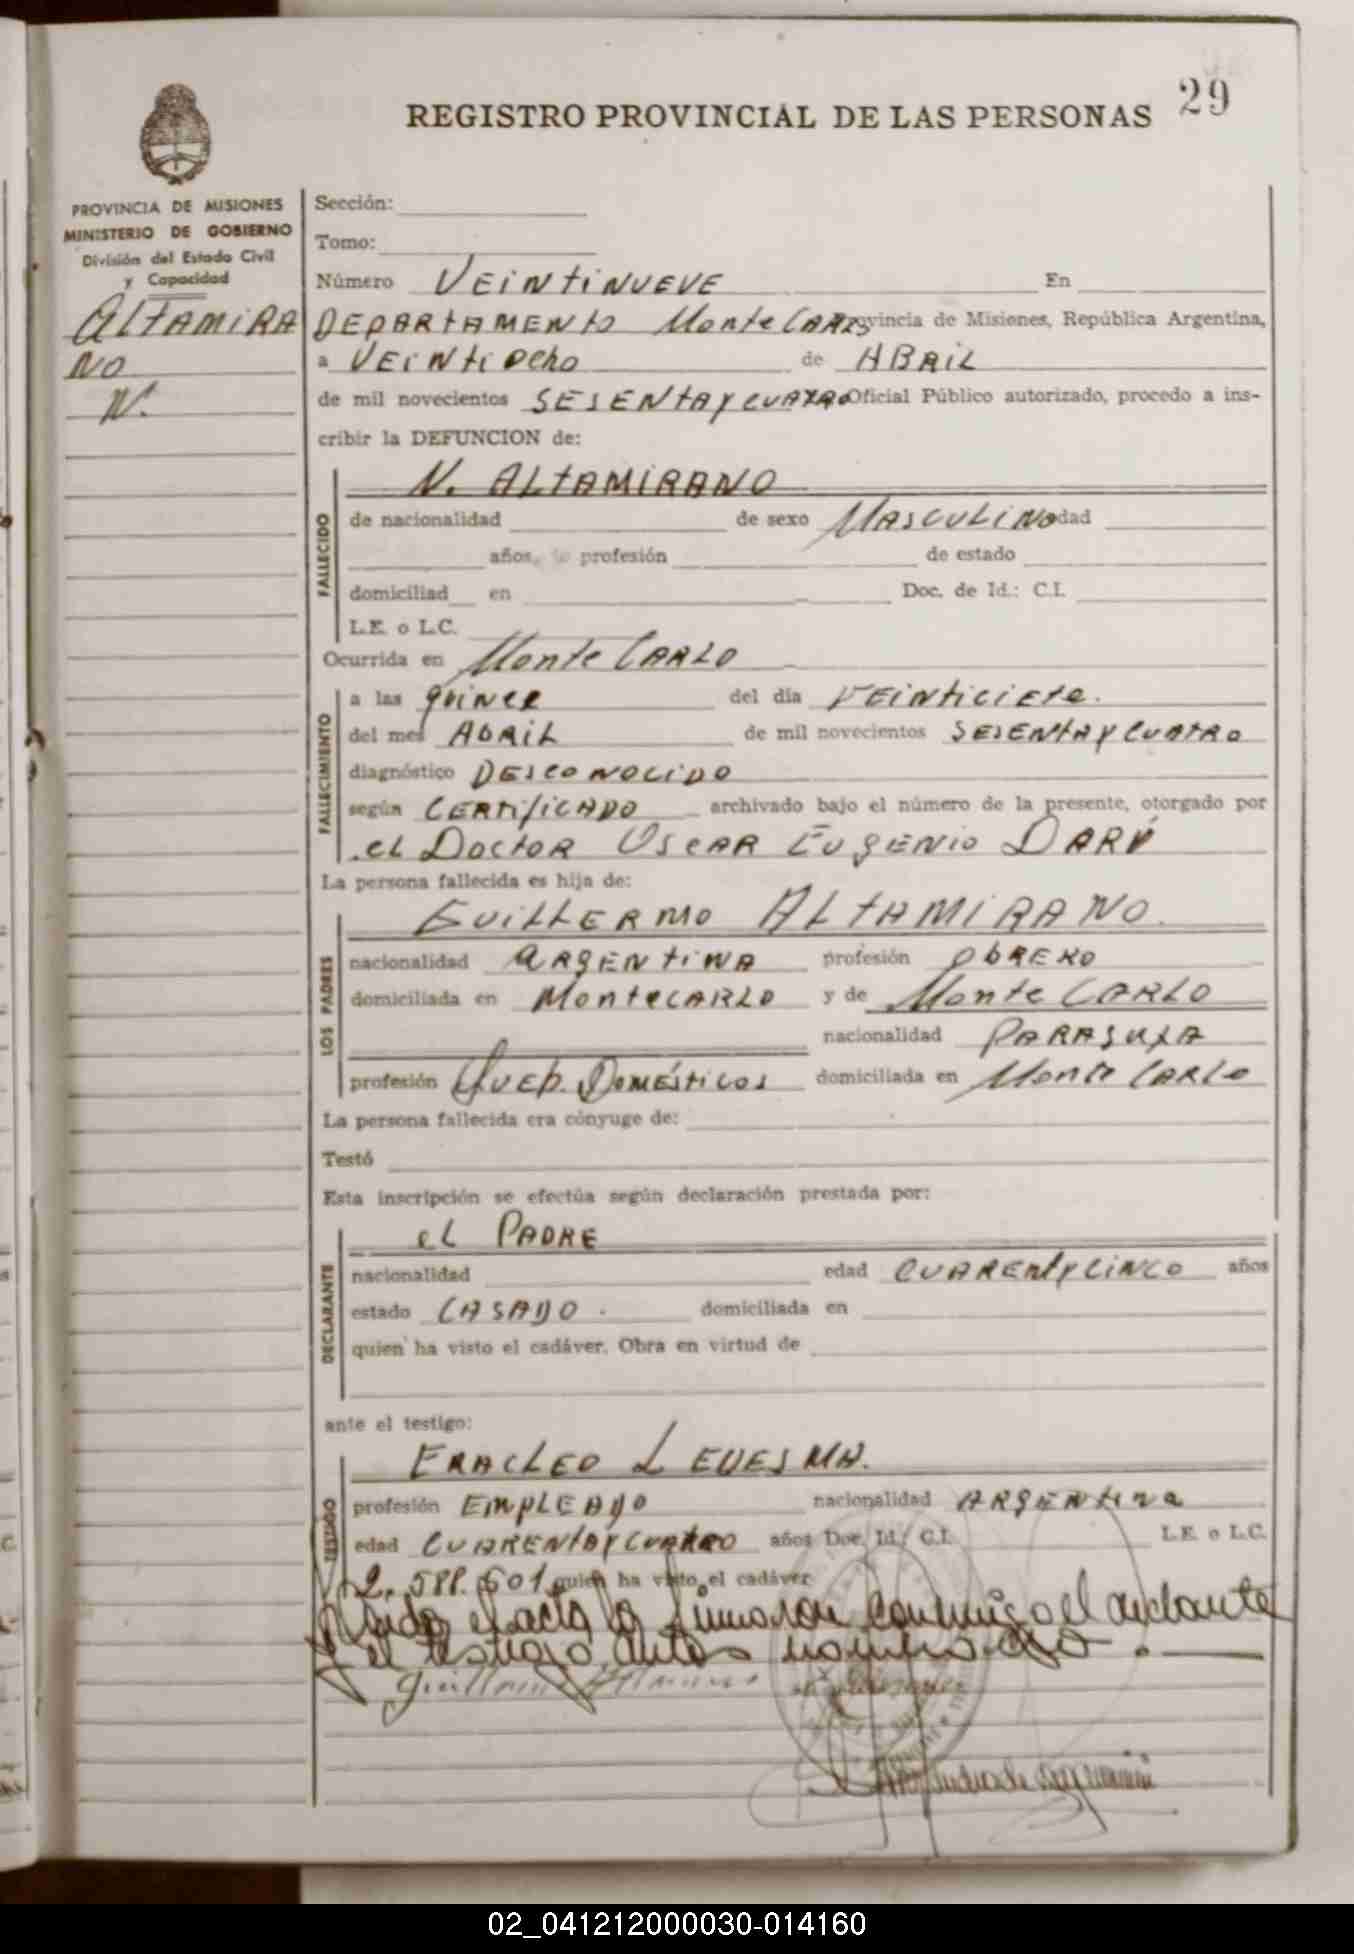 29
REGISTRO PROVINCIAL DE LAS PERSONAS
PROVINCIA DE MISIONES
MINISTERIO DE GOBIERNO
División del Estado Civil
y Capacidad
ALTAMIRA
NO
N.
Sección:
Tomo:
Número VEINTINUEVE En
DEPARTAMENTO Monte CARLO Provincia de Misiones, República Argentina,
a VEINTIOCHO de ABRIL
de mil novecientos SESENTA Y CUATRO Oficial Público autorizado, procedo a ins-
cribir la DEFUNCION de:
FALLECIDO
N. ALTAMIRANO
de nacionalidad de sexo MASCULINO edad
años, profesión de estado
domiciliad en Doc. de Id.: C.I.
L.E. o L.C.
Ocurrida en Monte CARLO
FALLECIMIENTO
a las quince del día VEINTICIETE.
del mes ABRIL de mil novecientos SESENTA Y CUATRO
diagnóstico DESCONOCIDO
según CERTIFICADO archivado bajo el número de la presente, otorgado por
el DOCTOR OSCAR EUGENIO DARÚ
La persona fallecida es hija de:
LOS PADRES
GUILLERMO ALTAMIRANO.
nacionalidad ARGENTINA profesión OBRERO
domiciliada en MONTECARLO y de Monte CARLO
nacionalidad PARAGUYA
profesión QUEH. DOMÉSTICOS domiciliada en Monte CARLO
La persona fallecida era cónyuge de:
Testó
Esta inscripción se efectúa según declaración prestada por:
DECLARANTE
el PADRE
nacionalidad edad CUARENTYCINCO años
estado CASADO. domiciliada en
quien ha visto el cadáver. Obra en virtud de
ante el testigo:
TESTIGO
ERACLEO LEUESMA.
profesión EMPLEADO nacionalidad ARGENTINA
edad CUARENTA Y CUATRO años Doc. Id./ C.I. L.E. o L.C.
2.588.601 quien ha visto el cadáver
el acta la firmaron conmigo el declarante
y el testigo antes nombrado.
02_041212000030-014160